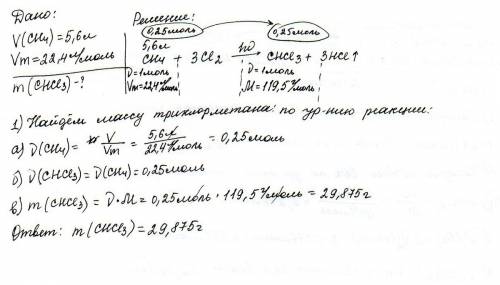 Дано:
V(CH4)=5,6л
Vm=22,4л/моль
m(CHCl3)-?
Решение:
0,25моль 0,25моль
5,6л
CH4 + 3Cl2 hν→ CHCl3 + 3HCl↑
ν=1моль ν=1моль
Vm=22,4л/моль M=119,5г/моль
1) Найдём массу трихлорметана: по ур-нию реакции:
а) ν(CH4) = V/Vm = 5,6л/22,4л/моль = 0,25моль
б) ν(CHCl3)=ν(CH4)=0,25моль
в) m(CHCl3) = ν·M = 0,25моль · 119,5г/моль = 29,875г
Ответ: m(CHCl3)=29,875г